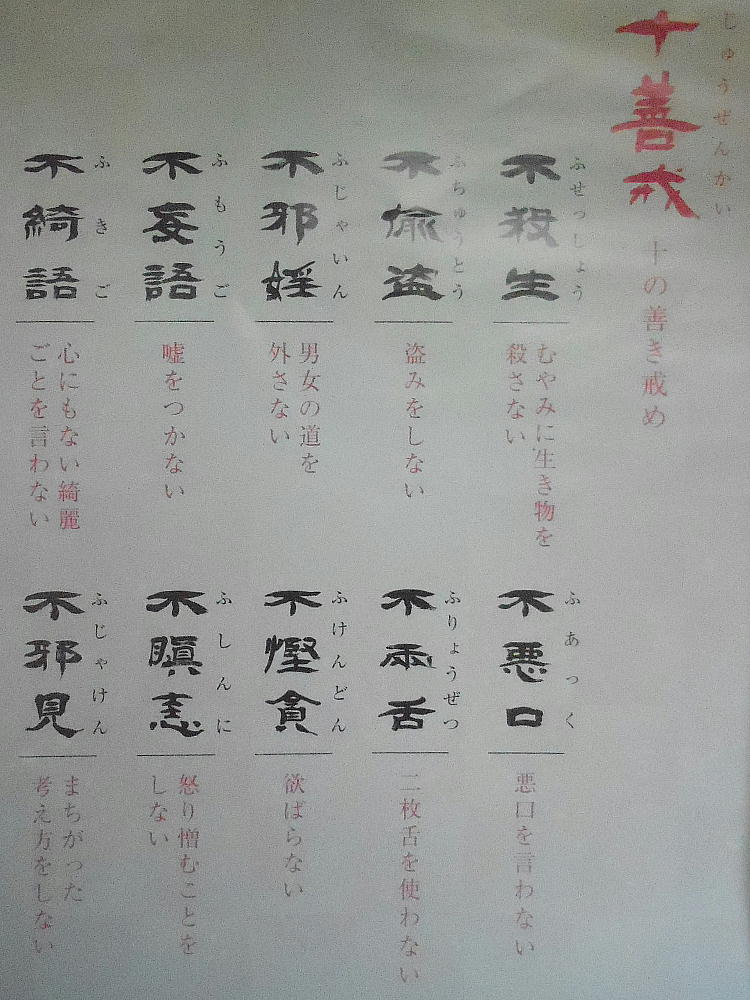 じゅうぜんかい
十善戒
十の善き戒め
ふせっしょう
不殺生
むやみに生き物を
殺さない
ふちゅうとう
不偸盗
盗みをしない
ふじゃいん
不邪婬
男女の道を
外さない
ふもうご
不妄語
嘘をつかない
ふきご
不綺語
心にもない綺麗
ごとを言わない
ふあっく
不悪口
悪口を言わない
ふりょうぜつ
不両舌
二枚舌を使わない
ふけんどん
不慳貪
欲ばらない
ふしんに
不瞋恚
怒り憎むことを
しない
ふじゃけん
不邪見
まちがった
考え方をしない